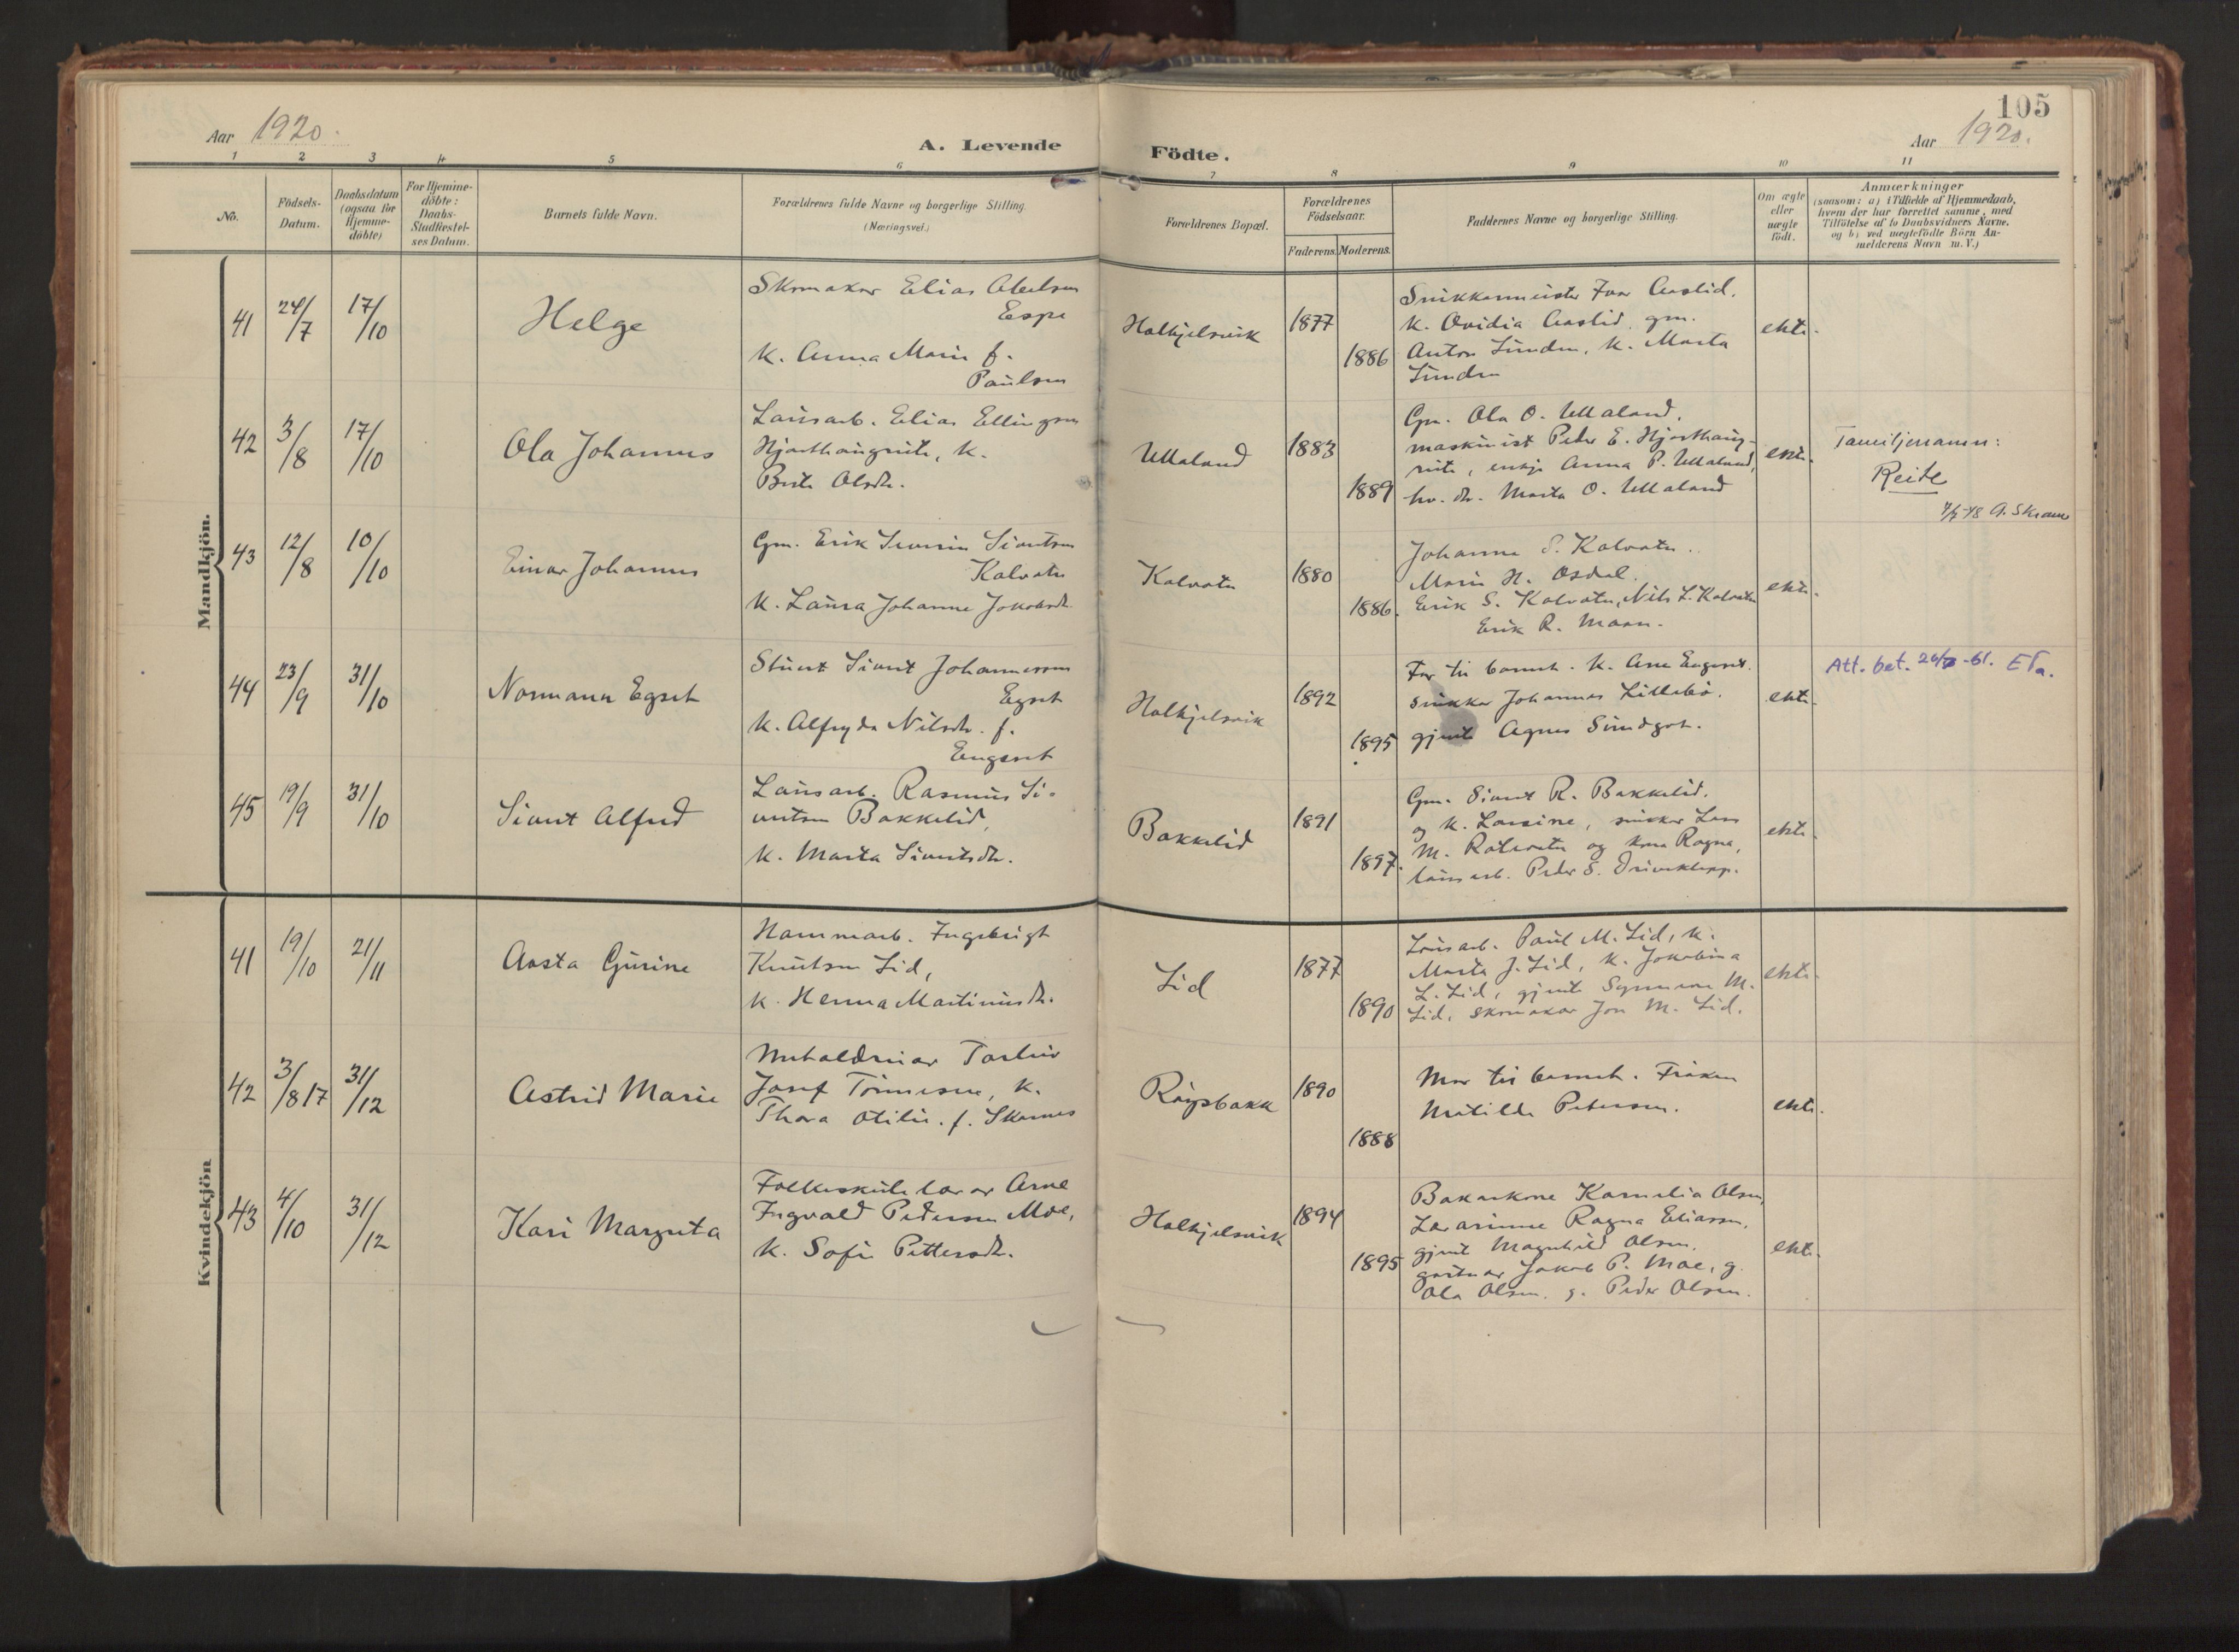 105
Aar 1920.
A. Levende
Födte.
Aar 1920.
1 2 3 4 5 6 7 8 9 10 11
No.
Födsels-
Datum.
Daabsdatum
(ogsaa for
Hjemme-
döbte)
For Hjemme-
döbte:
Daabs-
Stadfæstel-
ses Datum.
Barnets fulde Navn.
Forældrenes fulde Navne og borgerlige Stilling.
(Næringsvei.)
Forældrenes Bopæl.
Forældrenes
Födselsaar.
Faderens. Moderens.
Faddernes Navne og borgerlige Stilling.
Om ægte
eller
uægte
födt.
Anmærkninger
(saasom: a) i Tilfælde af Hjemmedaab,
hvem der har forrettet samme, med
Tilföielse af to Daabsvidners Navne,
og b) ved uægtefödte Börn An-
melderens Navn m. V.)
Mandkjön.
41
24/7
17/10
Helge
Skomakar Elias Abelsen
Espe
K. Anna Marie f.
Paulsen
Halkjelsvik
1877
1886
Snikkarmeister Ivar Aaslid.
K. Ovidia Aaslid, gm.
Anton Sunden, K. Marta
Sunden
ekte.
42
3/8
17/10
Ola Johannes
Lausarb. Elias Ellingsen
Hjorthaugreite, K.
Brite Olsdt.
Ullaland
1883
1889
Gm. Ola O. Ullaland,
maskinist Peder E. Hjorthaug-
reite, enkje Anna P. Ullaland,
hv. dr. Marta O. Ullaland
ekte.
Familjenamn:
Reite
4/7-48 A. Skram
43
12/8
10/10
Einar Johannes
Gm. Erik Severin Sivertsen
Kalvatn
K. Laura Johanne Jakobsdt.
Kalvatn
1880
1886.
Johanne S. Kalvatn.
Marie H. Osdal.
Erik S. Kalvatn, Nils L. Kalvatn
Erik R. Maan.
ekte.
44
23/9
31/10
Normann Egset
Sivert Johannessen
Egset
K. Alfryda Nilsdt. f.
Engeset
Halkjelsvik
1892
1895
Far til barnet. K. Ane Engeset.
snikkar Johannes Lillebö.
gjente Agnes Sundgot.
ekte.
Att. bet. 20/7-61.
45
19/9
31/10
Sivert Alfred
Lausarb. Rasmus Si-
vertsen Bakkelid,
K. Marta Sivertsdt.
Bakkelid
1891
1897.
Gm. Sivert R. Bakkelid.
og K. Larsine, snikkar Lars
M. Rotevatn og kona Ragna,
lausarb. Peder S. Driveklepp.
ekte.
Kvindekjön
41
19/10
21/11
Aasta Gurine
Hammarb. Ingebrigt
Knutsen Lid,
K. Henna Martinusdt.
Lid
1877
1890
Lausarb. Paul M. Lid, K.
Marta J. Lid, K. Jakobina
L. Lid, gjente Synnöve M.
Lid, skomakar Jon M. Lid.
ekte.
42
3/8 17
31/12
Astrid Marie
Torleiv
Josef Tönnesen, K.
Thora Otilie f. Skarnes
Röysbakk
1890
1888
Mor til barnet. Fröken
Matilde Petersen.
ekte.
43
4/10
31/12
Kari Margreta
Folkeskulelærar Arne
Ingvald Pedersen Moe,
K. Sofie Pettersdt.
Halkjelsvik
1894
1895
Bakarkone Karnelia Olsen,
Lærarinne Ragna Eliassen,
gjente Magnhild Olsen.
gartnar Jakob P. Moe, g.
Ola Olsen. g. Peder Olsen.
ekte.